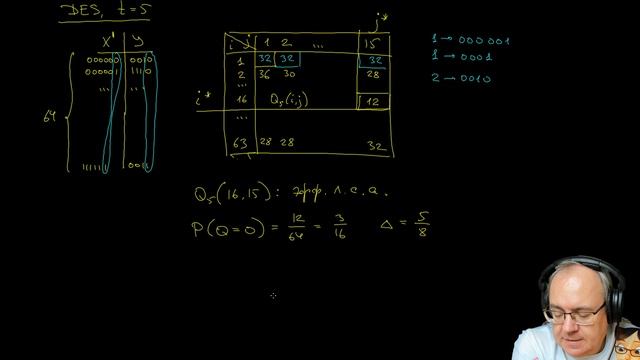 DES, t=5
X' Y
000000 0010
000001 1110
... ..
64
111111 0011
i j 1 2 ... 15
j*
1 32 32 32
2 36 30 28
...
i* 16 Q₅(i,j) 12
...
63 28 28 32
1 → 000001
1 → 0001
2 → 0010
Q₅(16,15): эфф. л. с. а.
P(Q=0) = 12/64 = 3/16 Δ = 5/8